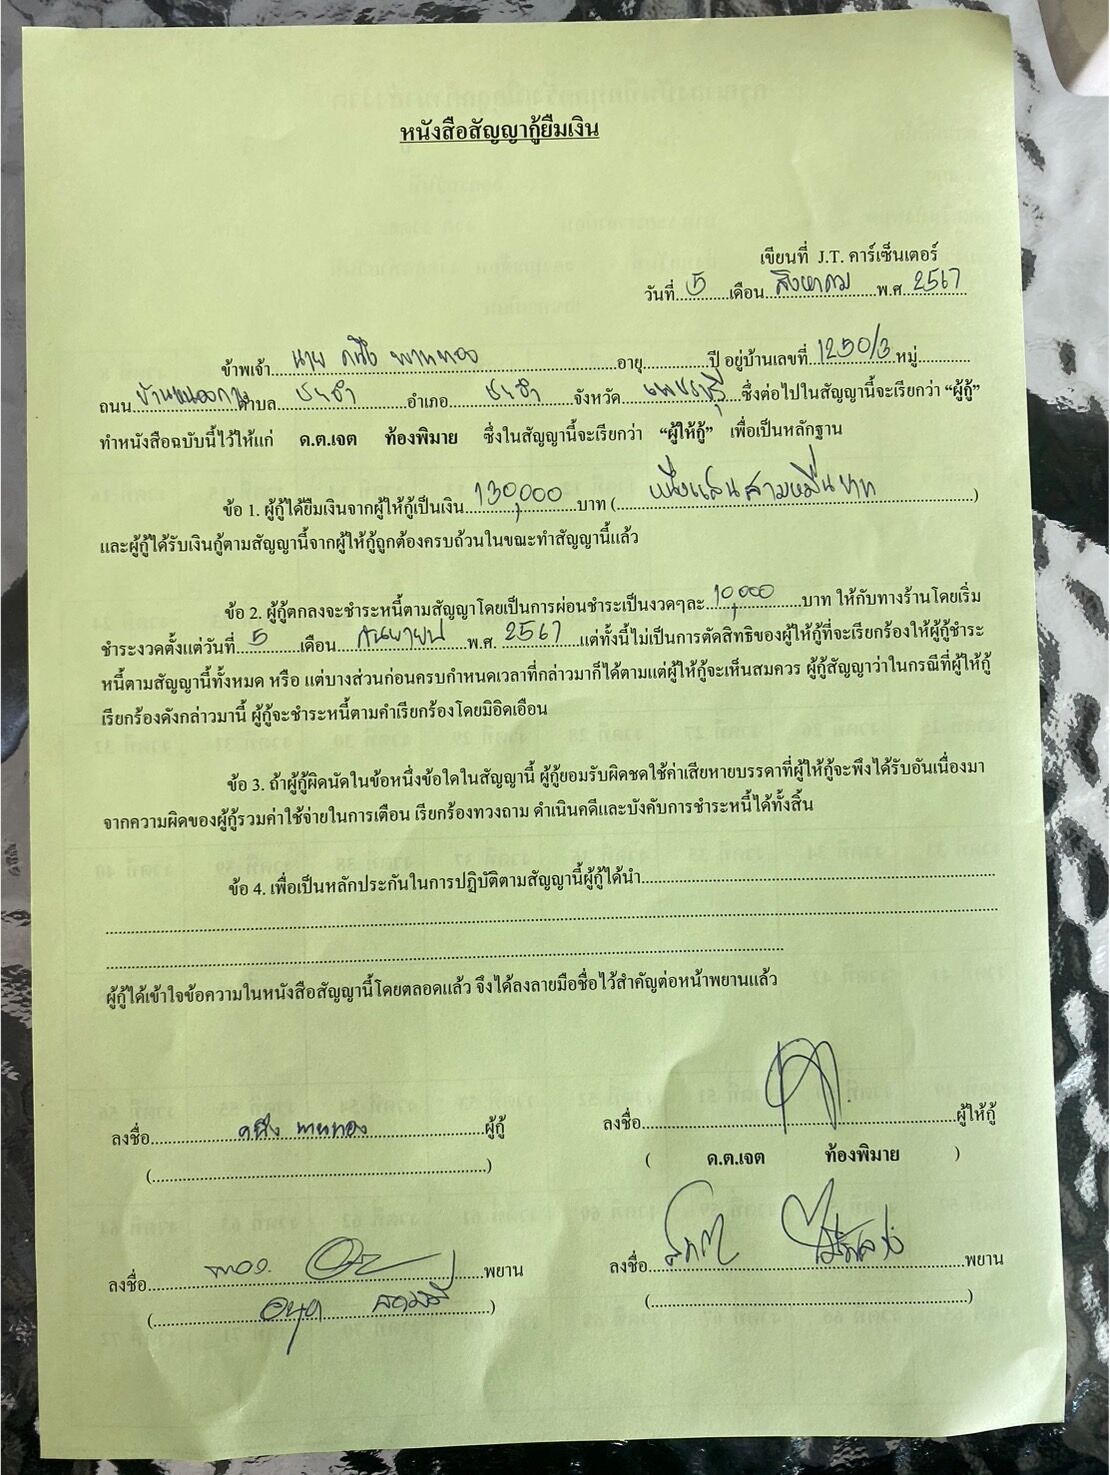 หนังสือสัญญากู้ยืมเงิน
เขียนที่ J.T. คาร์เซ็นเตอร์
วันที่ 5 เดือน สิงหาคม พ.ศ. 2567
ข้าพเจ้า นาย คนึง พานทอง อายุ..........ปี อยู่บ้านเลขที่ 1250/3 หมู่
ถนน บ้านหนองกาง ตำบล ชะอำ อำเภอ ชะอำ จังหวัด เพชรบุรี ซึ่งต่อไปในสัญญานี้จะเรียกว่า “ผู้กู้”
ทำหนังสือฉบับนี้ไว้ให้แก่ ด.ต.เจต ท้องพิมาย ซึ่งในสัญญานี้จะเรียกว่า “ผู้ให้กู้” เพื่อเป็นหลักฐาน
ข้อ 1. ผู้กู้ได้ยืมเงินจากผู้ให้กู้เป็นเงิน 130,000 บาท ( หนึ่งแสนสามหมื่นบาท )
และผู้กู้ได้รับเงินกู้ตามสัญญานี้จากผู้ให้กู้ถูกต้องครบถ้วนในขณะทำสัญญานี้แล้ว
ข้อ 2. ผู้กู้ตกลงจะชำระหนี้ตามสัญญาโดยเป็นการผ่อนชำระเป็นงวดๆละ 10,000 บาท ให้กับทางร้านโดยเริ่ม
ชำระงวดตั้งแต่วันที่ 5 เดือน กันยายน พ.ศ. 2567 แต่ทั้งนี้ไม่เป็นการตัดสิทธิของผู้ให้กู้ที่จะเรียกร้องให้ผู้กู้ชำระ
หนี้ตามสัญญานี้ทั้งหมด หรือ แต่บางส่วนก่อนครบกำหนดเวลาที่กล่าวมาก็ได้ตามแต่ผู้ให้กู้จะเห็นสมควร ผู้กู้สัญญาว่าในกรณีที่ผู้ให้กู้
เรียกร้องดังกล่าวมานี้ ผู้กู้จะชำระหนี้ตามคำเรียกร้องโดยมิอิดเอือน
ข้อ 3. ถ้าผู้กู้ผิดนัดในข้อหนึ่งข้อใดในสัญญานี้ ผู้กู้ยอมรับผิดชดใช้ค่าเสียหายบรรดาที่ผู้ให้กู้จะพึงได้รับอันเนื่องมา
จากความผิดของผู้กู้รวมค่าใช้จ่ายในการเตือน เรียกร้องทวงถาม ดำเนินคดีและบังคับการชำระหนี้ได้ทั้งสิ้น
ข้อ 4. เพื่อเป็นหลักประกันในการปฏิบัติตามสัญญานี้ผู้กู้ได้นำ
ผู้กู้ได้เข้าใจข้อความในหนังสือสัญญานี้โดยตลอดแล้ว จึงได้ลงลายมือชื่อไว้สำคัญต่อหน้าพยานแล้ว
ลงชื่อ คนึง พานทอง ผู้กู้ ลงชื่อ..........ผู้ให้กู้
(..........) ( ด.ต.เจต ท้องพิมาย )
ลงชื่อ..........พยาน ลงชื่อ..........พยาน
(..........) (..........)